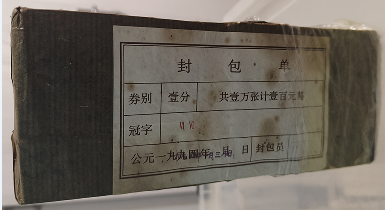 封包单
券别 壹分 共壹万张计壹百元整
冠字
公元一九九四年 月 日 封包员